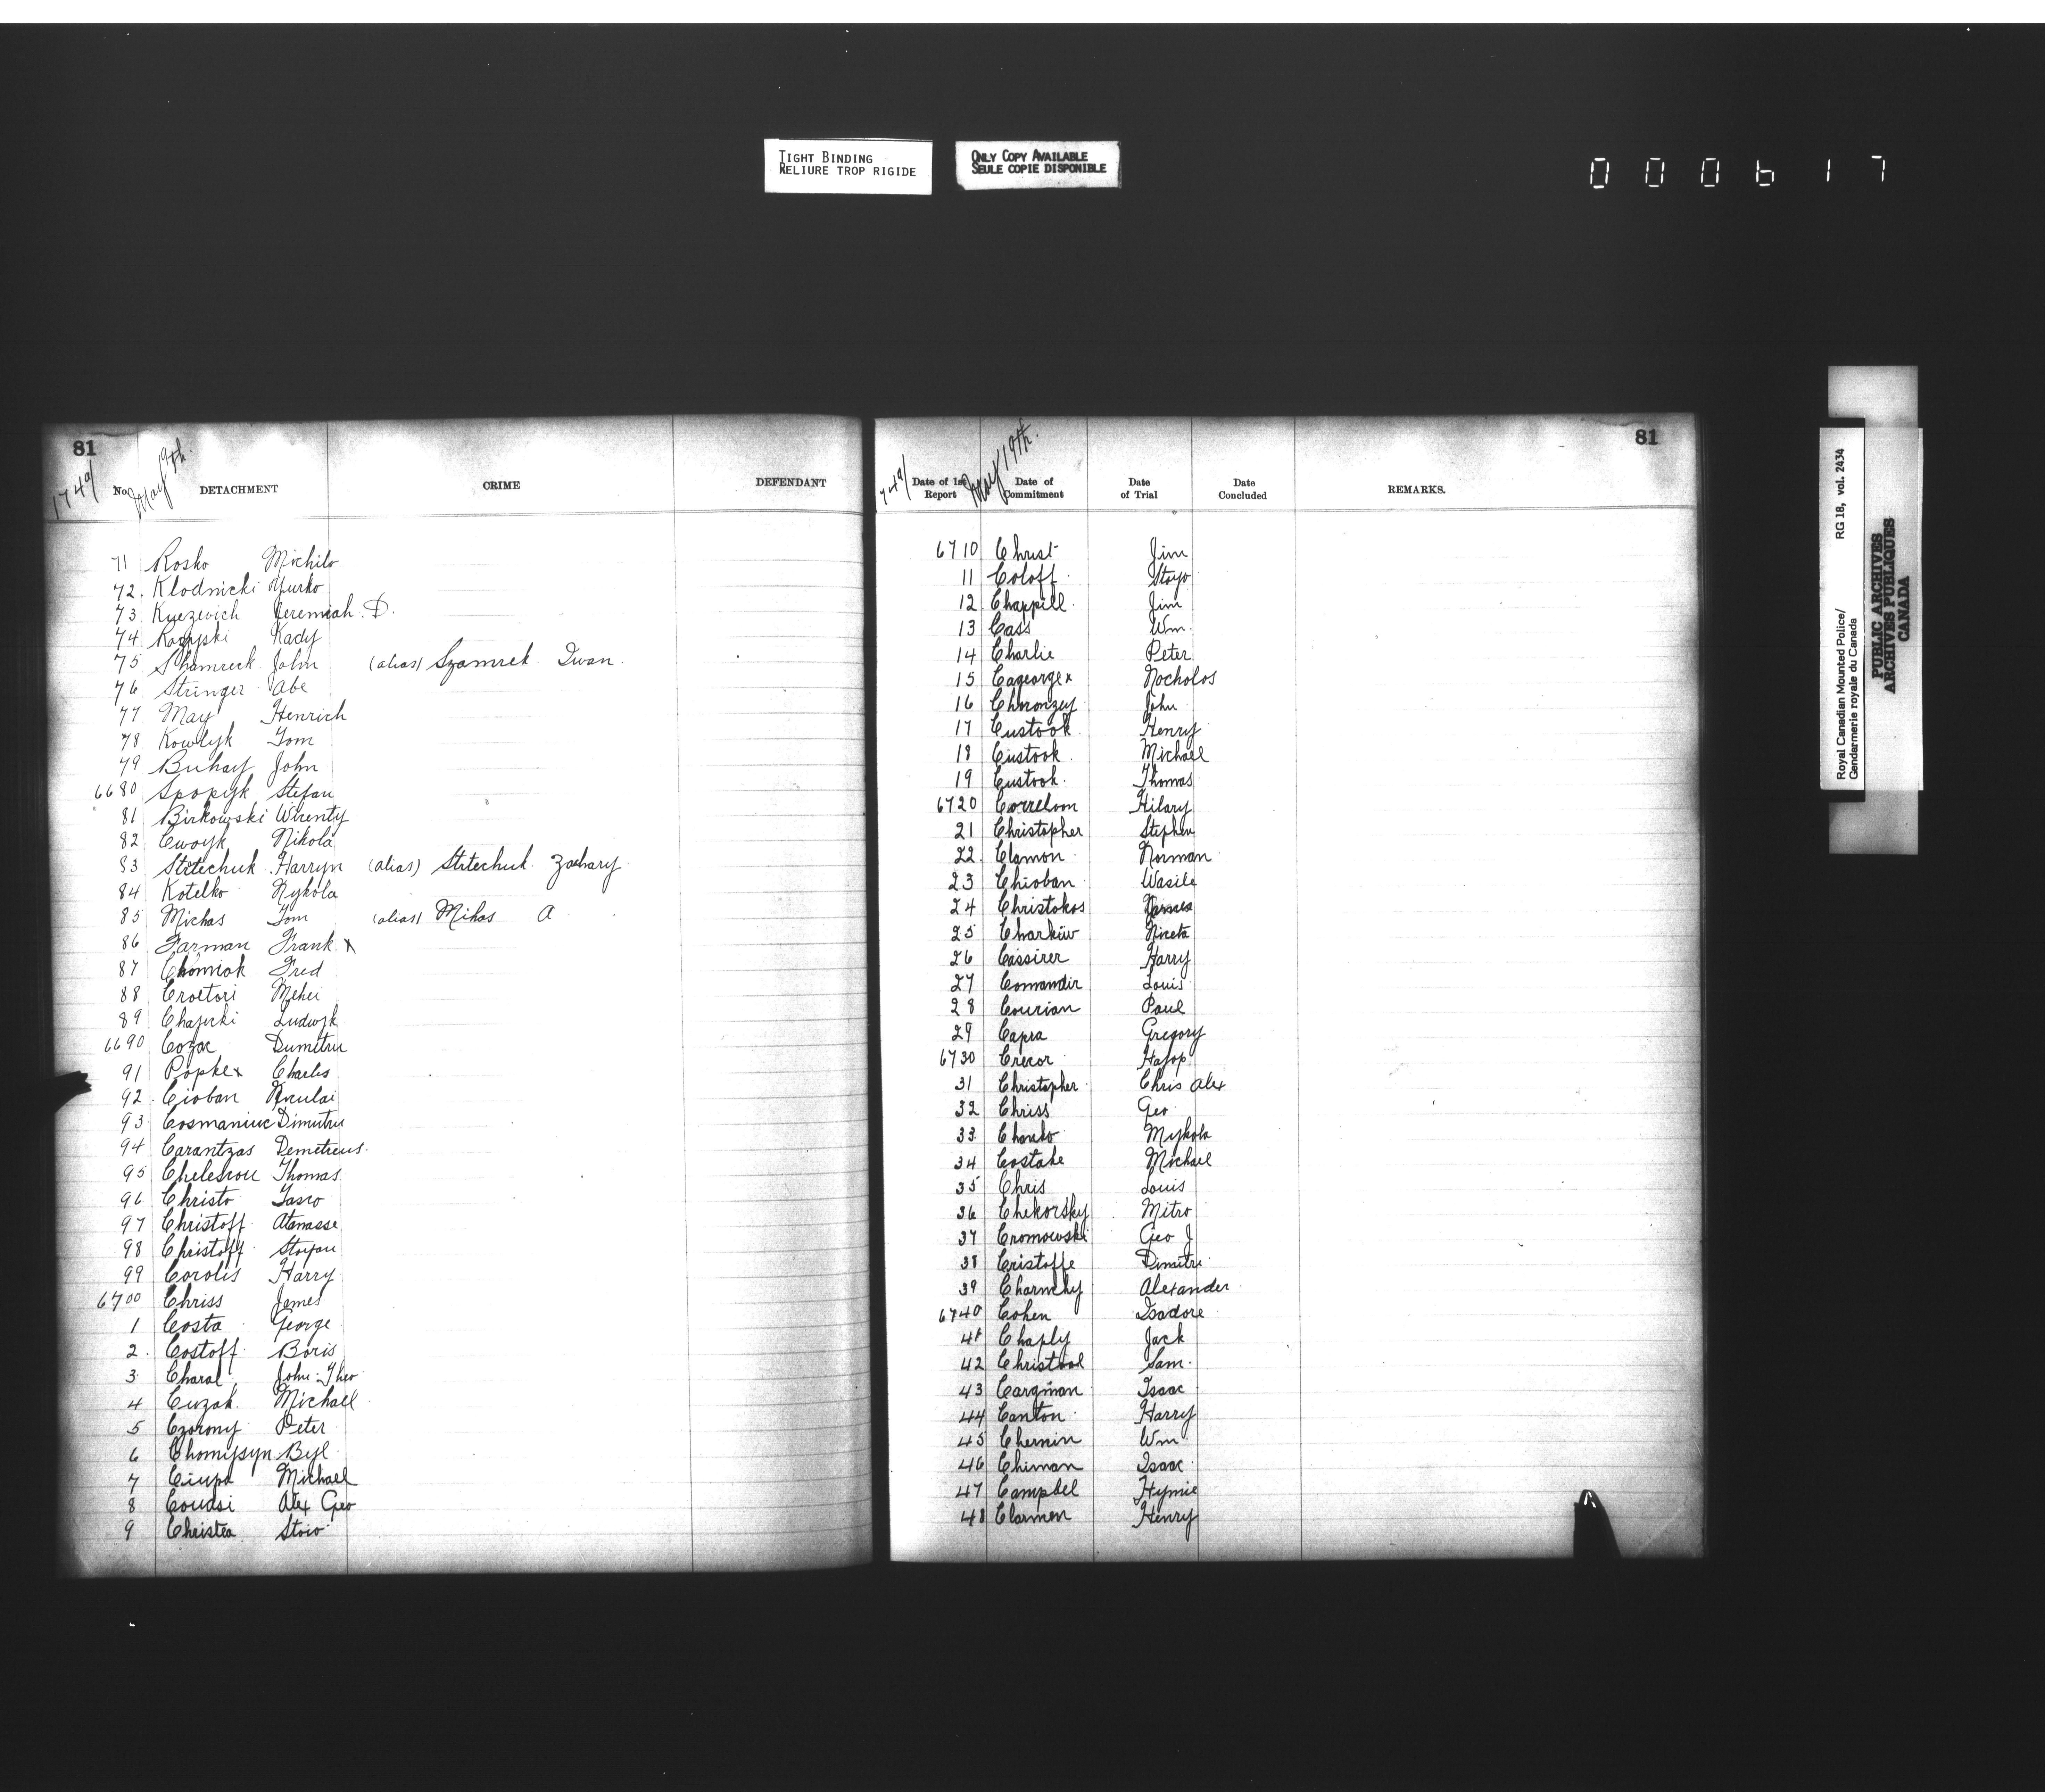 TIGHT BINDING
RELIURE TROP RIGIDE
ONLY COPY AVAILABLE
SEULE COPIE DISPONIBLE
000617
81
174a/ May 19th.
No. DETACHMENT CRIME DEFENDANT
71 Rosko Michilo
72. Klodnicki Yurko
73 Kyezevich Jeremiah. D.
74 Kady
75 Shamreck John (alias) Szamrek Iwan.
76 Stringer Abe
77 May Henrich
78 Kowlyk Tom
79 Buhay John
6680 Spopyk Stefan
81 Birkowski Wirenty
82 Cwoyk Nikola
83 Strtechuk Harryn (alias) Strtechuk Zachary
84 Kotelko Nykola
85 Michas Tom (alias) Mihas A
86 Farman Frank x
87 Chomiak Fred
88 Croitori Mehei
89 Ludwyk
6690 Cozac Dumitru
91 Popke x Charles
92. Cioban Neculai
93 Cosmaniuc Dimitru
94 Carantzas Demetreus.
95 Thomas
96 Christo Tasso
97 Christoff Atanasse
98 Christoff Stoyan
99 Corolis Harry
6700 Chriss James
1 Costa George
2. Costoff Boris
3 Charal John Theo
4 Cuzak Michael
5 Czorny Peter
6 Chomysyn Byl
7 Ciupa Michael
8 Coudsi Alex Geo
9 Christea Stoio
81
74a/ May 19th.
Date of 1st Report Date of Commitment Date of Trial Date Concluded REMARKS.
6710 Christ Jim
11 Coloff Stoyo
12 Chappill Jim
13 Cass Wm.
14 Charlie Peter
15 Cageorge x Nocholos
16 Choronzey John
17 Custook Henry
18 Custook Michael
19 Custook Thomas
6720 Correlvon Hilary
21 Christopher Stephen
22. Clamon Norman
23 Chioban Wasile
24 Christokos
25 Charkiw Niceta
26 Cassirer Harry
27 Comandir Louis
28 Courian Paul
29 Capra Gregory
6730 Crecor Hasop
31 Christopher Chris Alex
32 Chriss Geo
33 Chanko Mykola
34 Costake Michael
35 Chris Louis
36 Chekorsky Mitro
37 Cromowski Geo J
38 Cristoffe Dimitri
39 Charnchy Alexander
6740 Cohen Isadore
41 Chaply Jack
42 Christool Sam.
43 Cargman Isaac
44 Canton Harry
45 Chernin Wm
46 Chiman Isaac
47 Campbel Hymie
48 Clarmen Henry
Royal Canadian Mounted Police/ RG 18, vol. 2434
Gendarmerie royale du Canada
PUBLIC ARCHIVES
ARCHIVES PUBLIQUES
CANADA